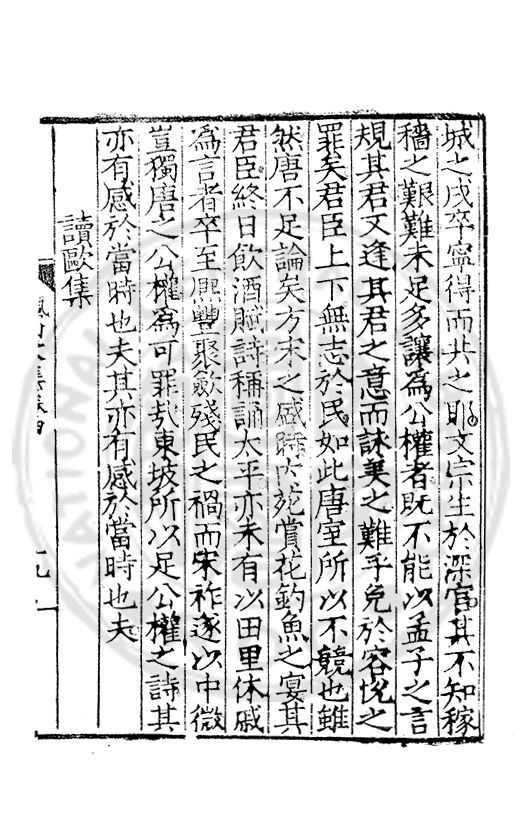 城之戍卒寧得而共之耶文宗生於深宮其不知稼
穡之艱難未足多讓為公權者既不能以孟子之言
規其君又逢其君之意而詠美之難乎免於容悅之
罪矣君臣上下無志於民如此唐室所以不競也雖
然唐不足論矣方宋之盛時內苑賞花釣魚之宴其
君臣終日飲酒賦詩稱誦太平亦未有以田里休戚
為言者卒至熙豐聚斂殘民之禍而宋祚遂以中微
豈獨唐之公權為可罪哉東坡所以足公權之詩其
亦有感於當時也夫其亦有感於當時也夫
讀歐集
NATIONAL